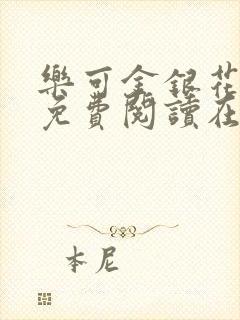 樂可金銀花
免費閱讀在
本尼